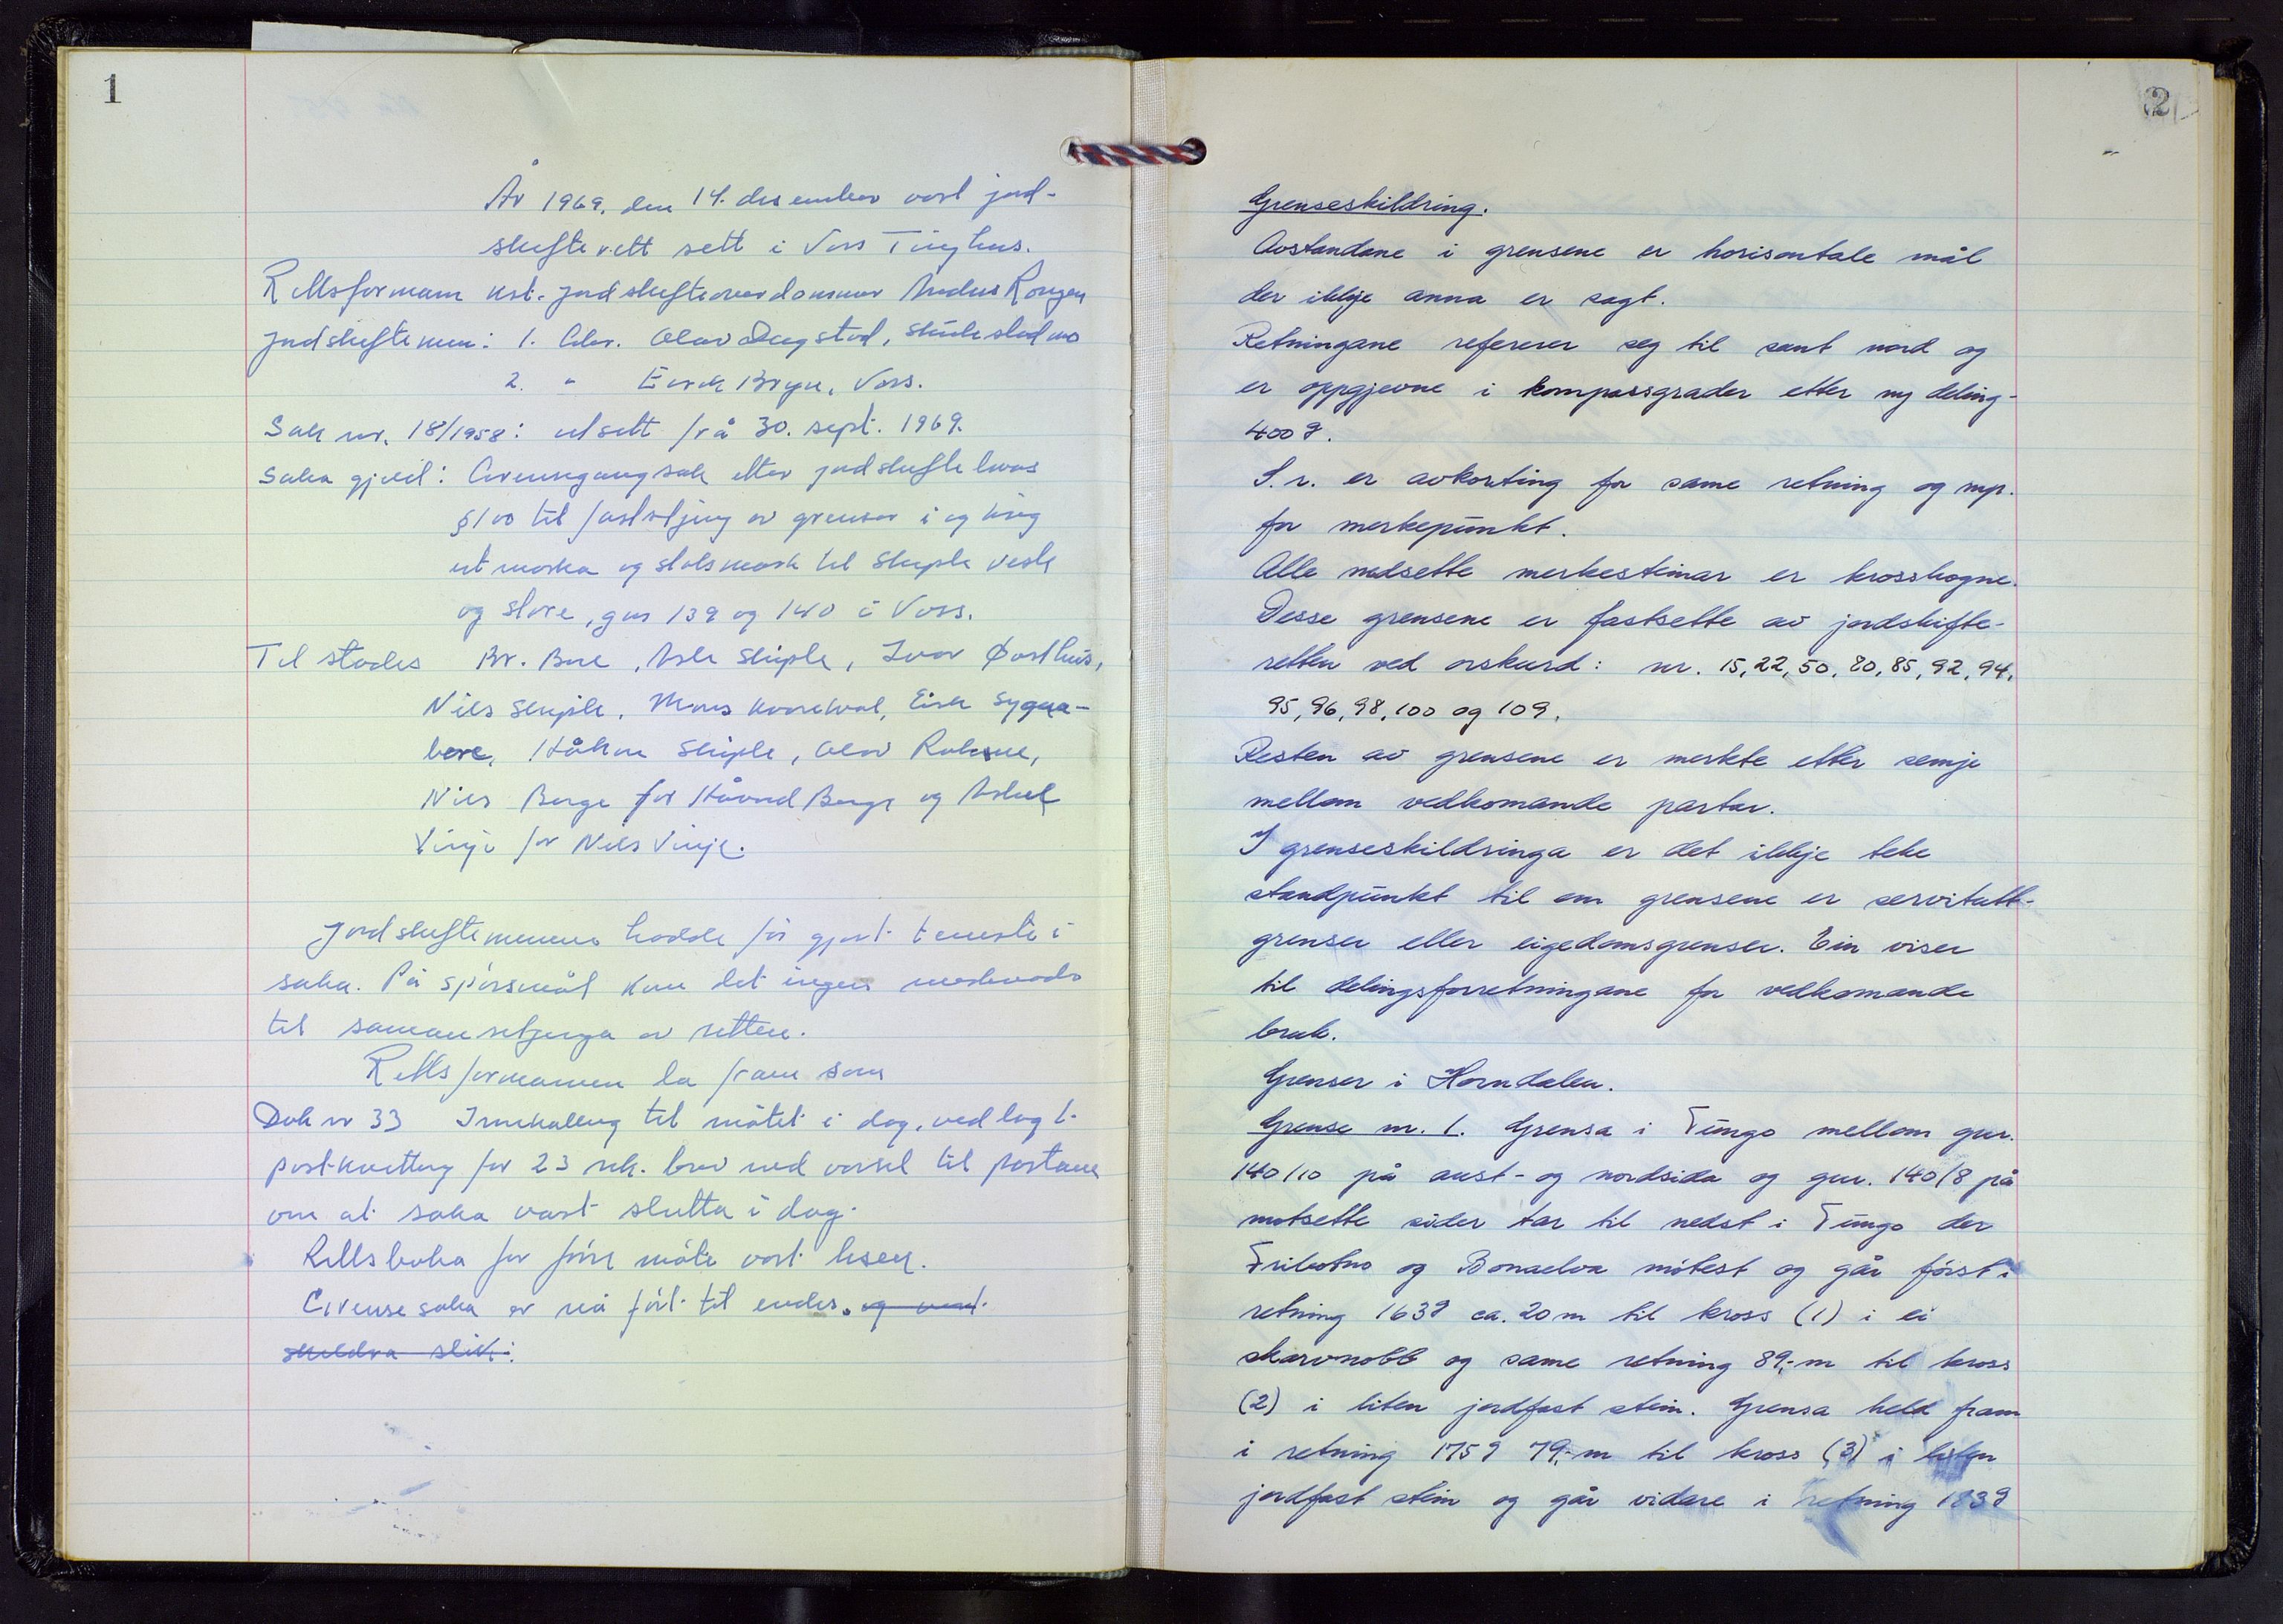 1
År 1969, den 14. desember vart jord-
skifterett sett i Voss Tinghus.
Rettsformann kst. jordskifteoverdommar Anders Rongen
Jordskiftemenn: 1. Gbr. Olav Dugstad, Skulestadmo
2. " Eirik Bryn, Voss.
Sak nr. 18/1958: utsett frå 30. sept. 1969.
Saka gjeld: Grensegangsak etter jordskiftelova
§ 100 til fastsetjing av grenser i og kring
utmarka og stølsmark til Skiple vesle
og store, gnr 139 og 140 i Voss.
Til stades Br. Boe, Asle Skiple, Ivar Øvsthus,
Nils Skiple, Mons Kvarekval, Eirik Sygna-
bere, Håkon Skiple, Olav Rokne,
Nils Berge for Håvard Berge og
Vinje for Nils Vinje.
Jordskiftemennene hadde før gjort teneste i
saka. På spørsmål kom det ingen merknads
til samansetjinga av retten.
Rettsformannen la fram som
Dok nr 33 Innkalling til møtet i dag, vedlagt
postkvittering for 23 rek. brev med varsel til partane
om at saka vart slutta i dag.
Rettsboka for førre møte vart lesen.
Grensesaka er nå ført til endes. og vart
skildra slik:
2
Grenseskildring.
Avstandane i grensene er horisontale mål
der ikkje anna er sagt.
Retningane refererer seg til sant nord og
er oppgjevne i kompassgrader etter ny deling-
400 g.
S.r. er avkorting for same retning og mp.
for merkepunkt.
Alle nedsette merkesteinar er krosshogne.
Desse grensene er fastsette av jordskifte-
retten ved orskurd: nr. 15, 22, 50, 80, 85, 92, 94,
95, 96, 98, 100 og 109.
Resten av grensene er merkte etter semje
mellom vedkomande partar.
I grenseskildringa er det ikkje teke
standpunkt til om grensene er servitutt-
grenser eller eigedomsgrenser. Ein viser
til delingsforretningane for vedkomande
bruk.
Grenser i Horndalen.
Grense nr. 1. Grensa i Tungo mellom gnr.
140/10 på aust- og nordsida og gnr. 140/8 på
motsette sider tar til nedst i Tungo der
og Bonaelva møtest og går først i
retning 163 g ca. 20 m til kross (1) i ei
skarvnobb og same retning 89,- m til kross
(2) i liten jordfast stein. Grensa held fram
i retning 175 g 79,- m til kross (3) i liten
jordfast stein og går vidare i retning 183 g